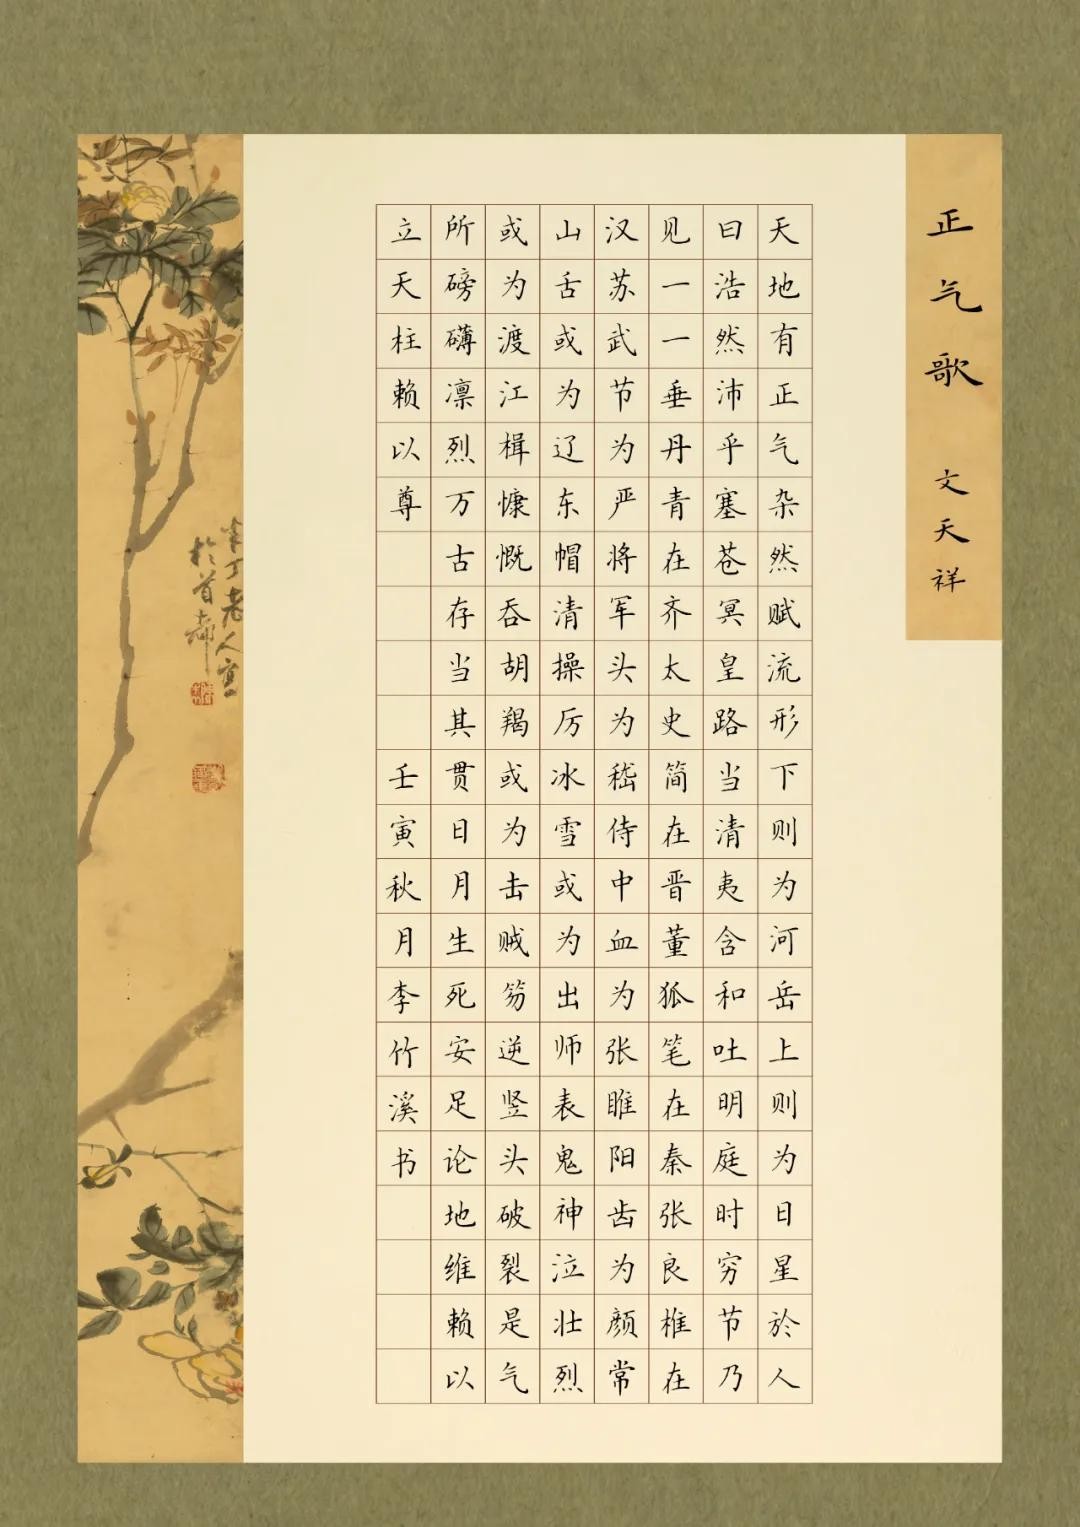 正气歌 文天祥
天地有正气杂然赋流形下则为河岳上则为日星於人
曰浩然沛乎塞苍冥皇路当清夷含和吐明庭时穷节乃
见一一垂丹青在齐太史简在晋董狐笔在秦张良椎在
汉苏武节为严将军头为嵇侍中血为张睢阳齿为颜常
山舌或为辽东帽清操厉冰雪或为出师表鬼神泣壮烈
或为渡江楫慷慨吞胡羯或为击贼笏逆竖头破裂是气
所磅礴凛烈万古存当其贯日月生死安足论地维赖以
立天柱赖以尊 壬寅秋月李竹溪书
丁老人写
於首都